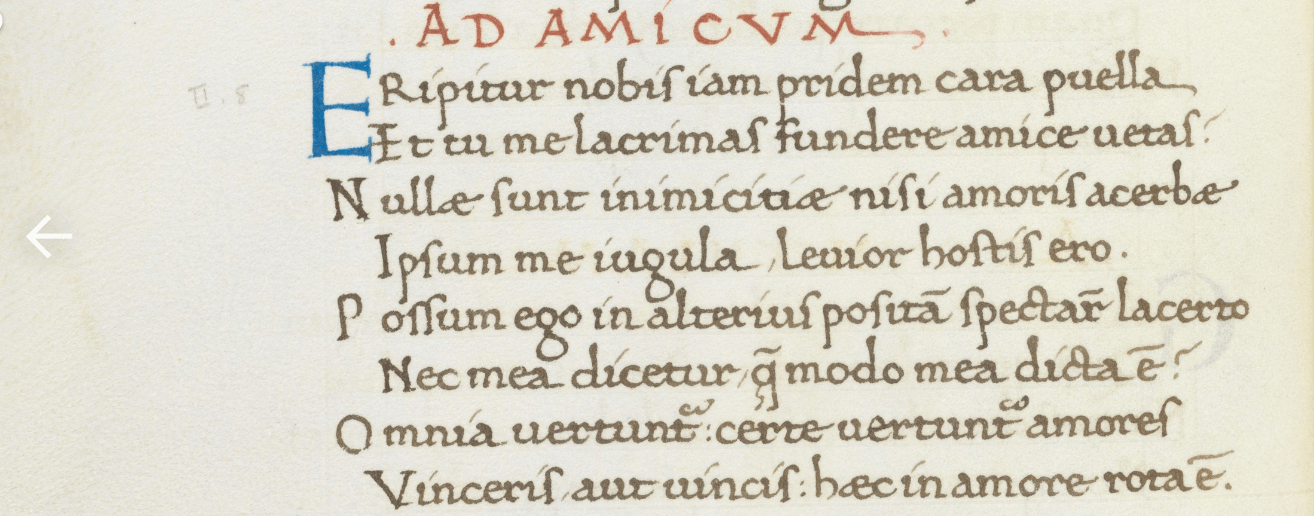 . AD AMICVM .
II. 8
ERipitur nobiſ iam pridem cara puella
Et tu me lacrimaſ fundere amice uetaſ?
Nullæ ſunt inimicitiæ niſi amoriſ acerbæ
Ipſum me iugula, leuior hoſtiſ ero.
Poſſum ego in alteriuſ poſitā ſpectar̄ lacerto
Nec mea dicetur, q̄ modo mea dicta ē?
Omnia uertunt᷑: certe uertunt᷑ amoreſ
Vinceriſ, aut uinciſ: hæc in amore rota ē.